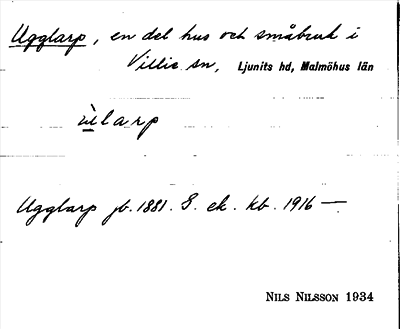 Ugglarp, en del hus och småbruk i
Villie sn, Ljunits hd, Malmöhus län
ùlarp
Ugglarp jb. 1881. G. ek. kb. 1916 —
NILS NILSSON 1934